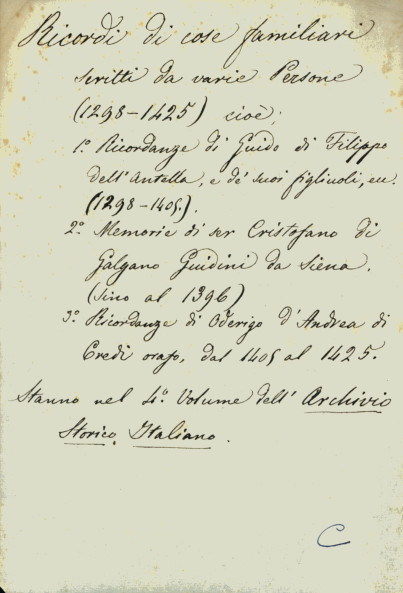 Ricordi di cose familiari
scritti da varie Persone
(1298-1425) cioè;
1.º Ricordanze di Guido di Filippo
dell'Antella, e de' suoi figliuoli, ecc.
(1298-1405.).
2.º Memorie di ser Cristofano di
Galgano Guidini da Siena.
(sino al 1396)
3.º Ricordanze di Oderigo d'Andrea di
Credi orafo, dal 1405 al 1425.
Stanno nel 4.º Volume dell' Archivio
Storico Italiano.
C